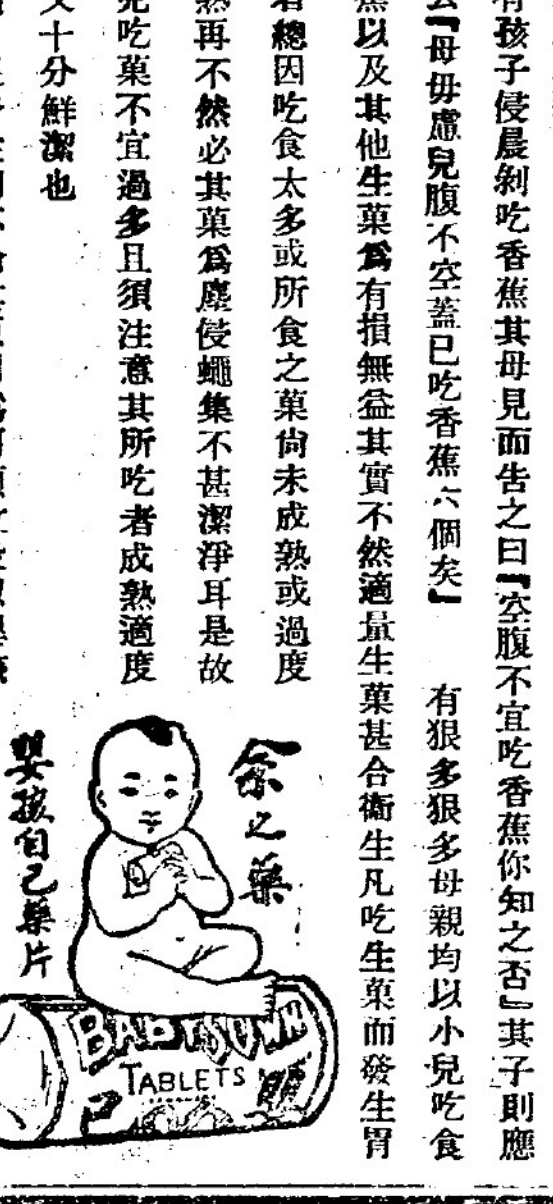 有孩子侵晨剝吃香蕉其母見而告之曰『空腹不宜吃香蕉你知之否』其子則應
『母毋慮兒腹不空蓋已吃香蕉六個矣』 有狠多狠多母親均以小兒吃食
蕉以及其他生菓爲有損無益其實不然適量生菓甚合衞生凡吃生菓而發生胃
者總因吃食太多或所食之菓尙未成熟或過度
熟再不然必其菓爲塵侵蠅集不甚潔淨耳是故
兒吃菓不宜過多且須注意其所吃者成熟適度
又十分鮮潔也
余之藥
嬰孩自己藥片
BABY'S OWN
TABLETS